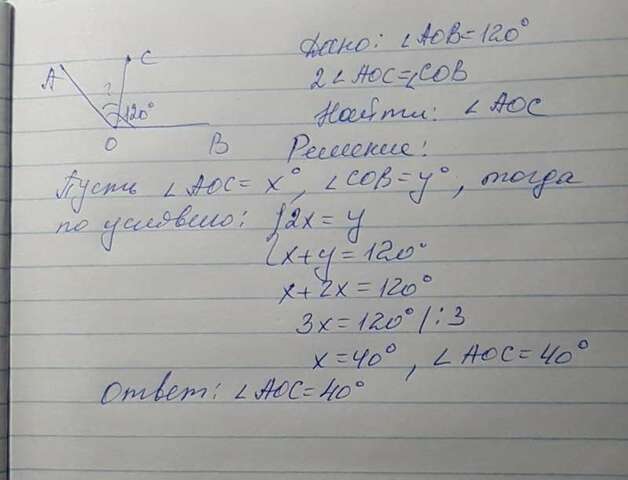 Дано: ∠AOB=120°
2∠AOC=∠COB
Найти: ∠AOC
A
C
?
120°
O
B
Решение:
Пусть ∠AOC=x°, ∠COB=y°, тогда
по условию: {2x=y
{x+y=120°
x+2x=120°
3x=120° /:3
x=40°, ∠AOC=40°
Ответ: ∠AOC=40°